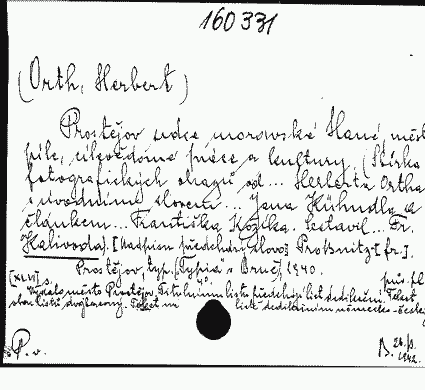 160331
(Orth, Herbert)
Prostějov srdce moravské Hané, město
píle, cílevědomé práce a kultury. (Sbírka
fotografických obrazů od... Herberta Ortha
s úvodním slovem... Jana Kühndla a
článkem... Františka Kožíka. Sestavil... Fr.
Kalivoda). [Nadpisem předcházejí slovo] Proßnitz [fr.].
Prostějov, typ. ("Typia" v Brně) 1940.
[XLVI] s. příl.
Vydalo město Prostějov. Titulnímu listu předchází list dedikační. Text
list dedikačním německo-český
P. v.
26./3. 1942.